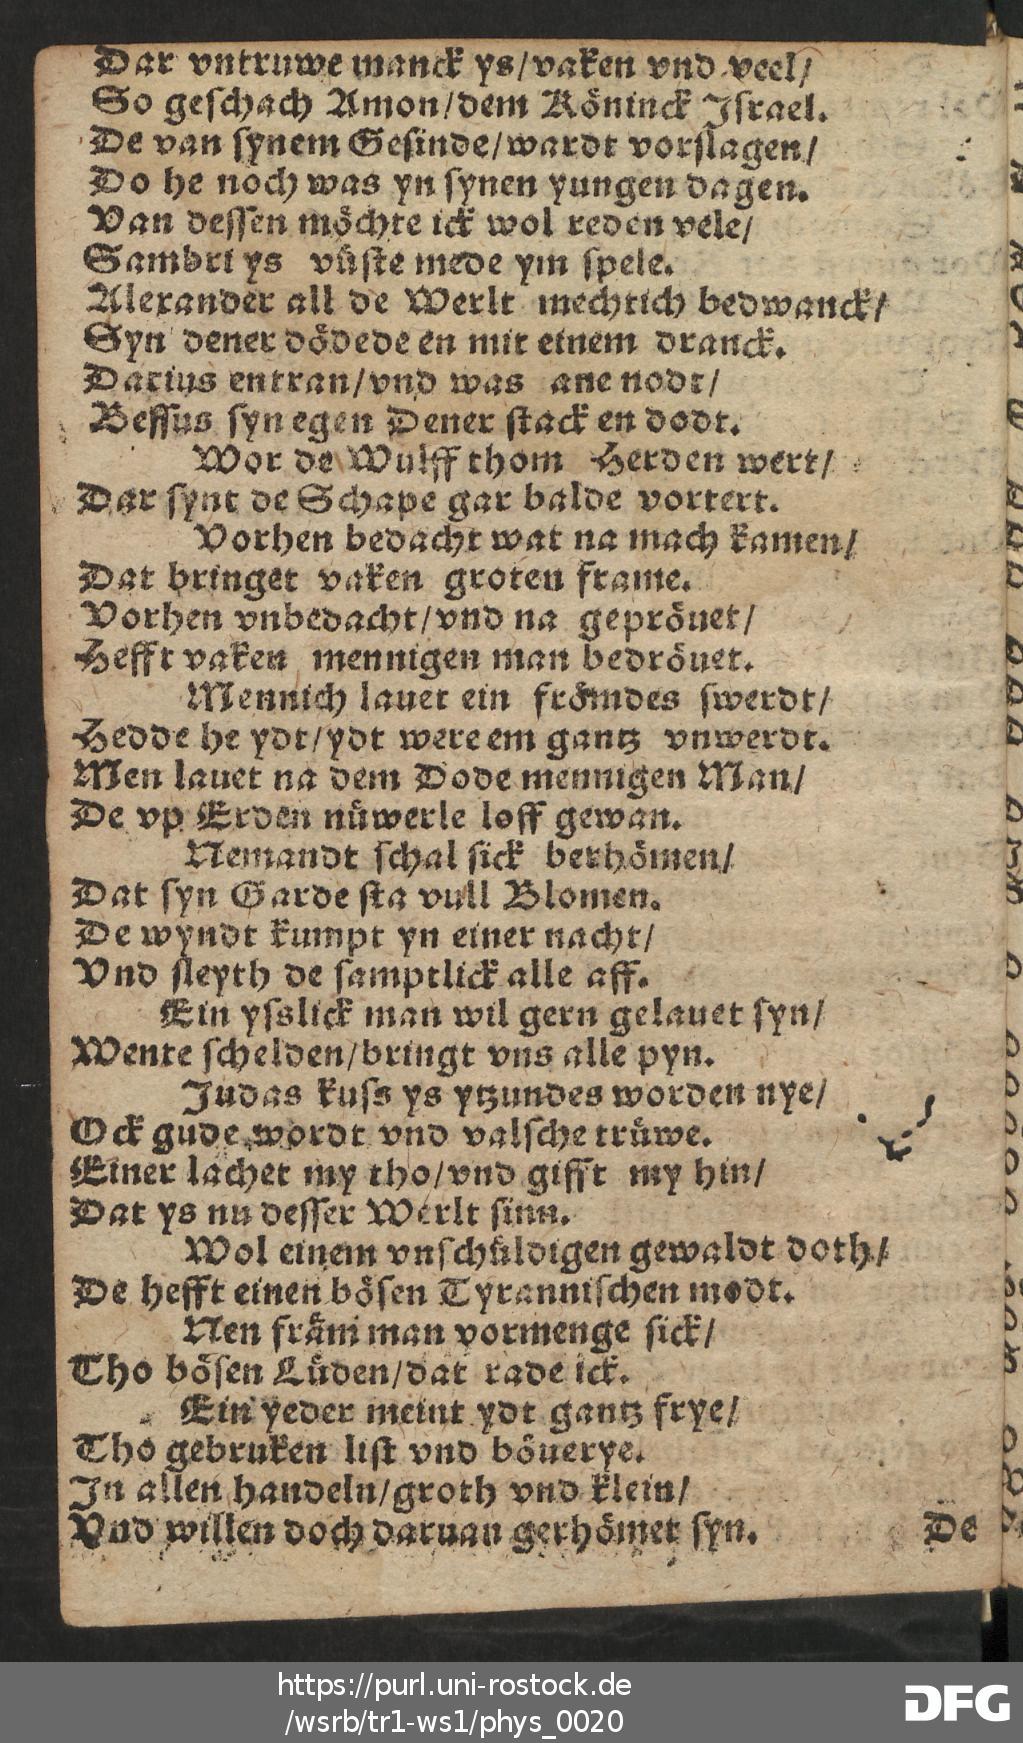 Dar vntruwe manck ys/vaken vnd veel/
So geschach Amon/dem Köninck Israel.
De van synem Gesinde/wardt vorslagen/
Do he noch was yn synen yungen dagen.
Van dessen möchte ick wol reden vele/
Sambri ys vüste mede ym spele.
Alexander all de Werlt mechtich bedwanck/
Syn dener dödede en mit einem dranck.
Darius entran/vnd was ane nodt/
Bessus syn egen Dener stack en dodt.
Wor de Wulff thom Herden wert/
Dar synt de Schape gar balde vortert.
Vorhen bedacht wat na mach kamen/
Dat bringet vaken groten frame.
Vorhen vnbedacht/vnd na geprövet/
Hefft vaken mennigen man bedrövet.
Mennich lauet ein frömdes swerdt/
Hedde he ydt/ydt were em gantz vnwerdt.
Men lauet na dem Dode mennigen Man/
De vp Erden nüwerle loff gewan.
Nemandt schal sick berhömen/
Dat syn Garde sta vull Blomen.
De wyndt kumpt yn einer nacht/
Vnd sleyth de samptlick alle aff.
Ein ysslick man wil gern gelauet syn/
Wente schelden/bringt vns alle pyn.
Judas kuss ys ytzundes worden nye/
Ock gude wordt vnd valsche trüwe.
Einer lachet my tho/vnd gifft my hin/
Dat ys nu desser Werlt sinn.
Wol einem vnschüldigen gewaldt doth/
De hefft einen bösen Tyrannischen modt.
Nen främ man vormenge sick/
Tho bösen Lüden/dat rade ick.
Ein yeder meint ydt gantz frye/
Tho gebruken list vnd böuerye.
In allen handeln/groth vnd klein/
Vnd willen doch daruan gerhömet syn. De
https://purl.uni-rostock.de
/wsrb/tr1-ws1/phys_0020
DFG